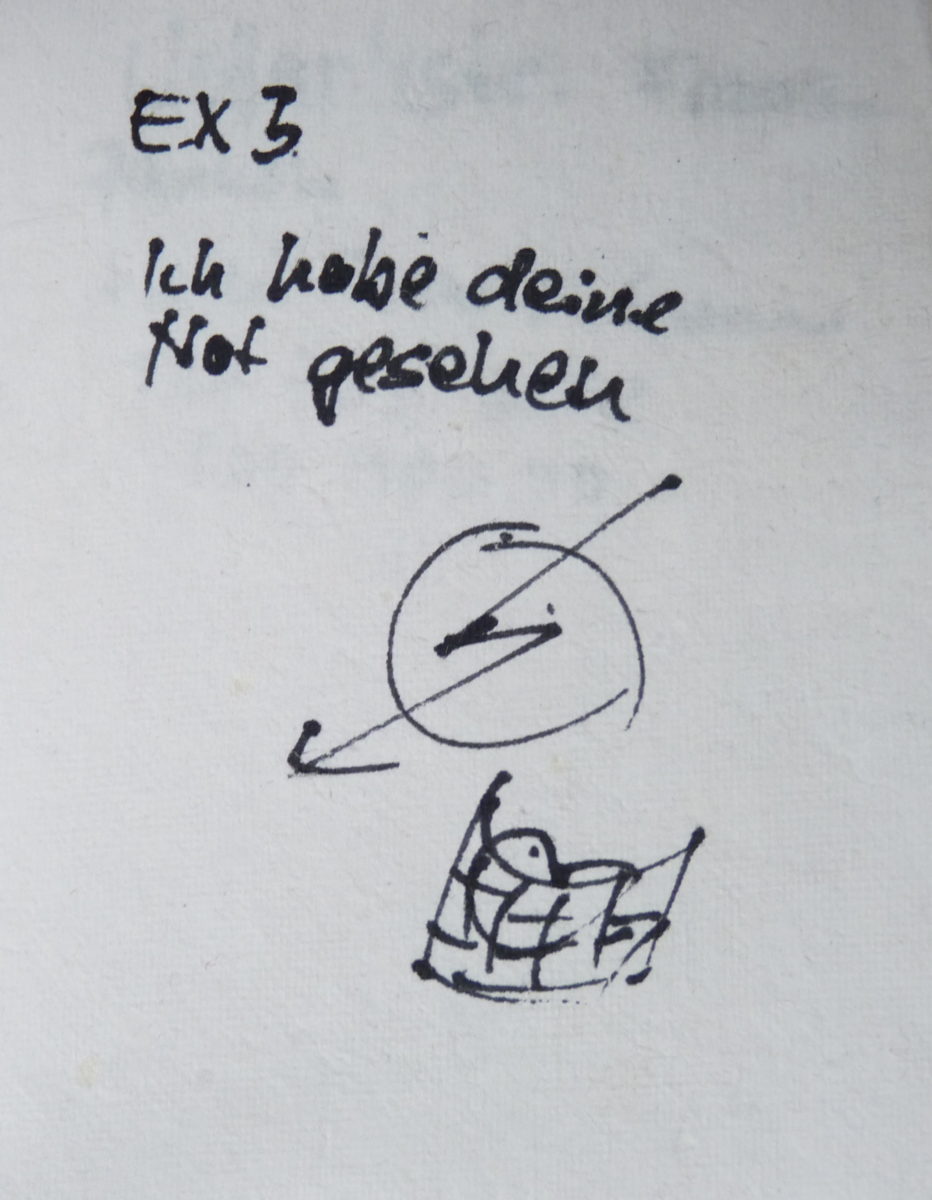 EX 3
Ich habe deine
Not gesehen